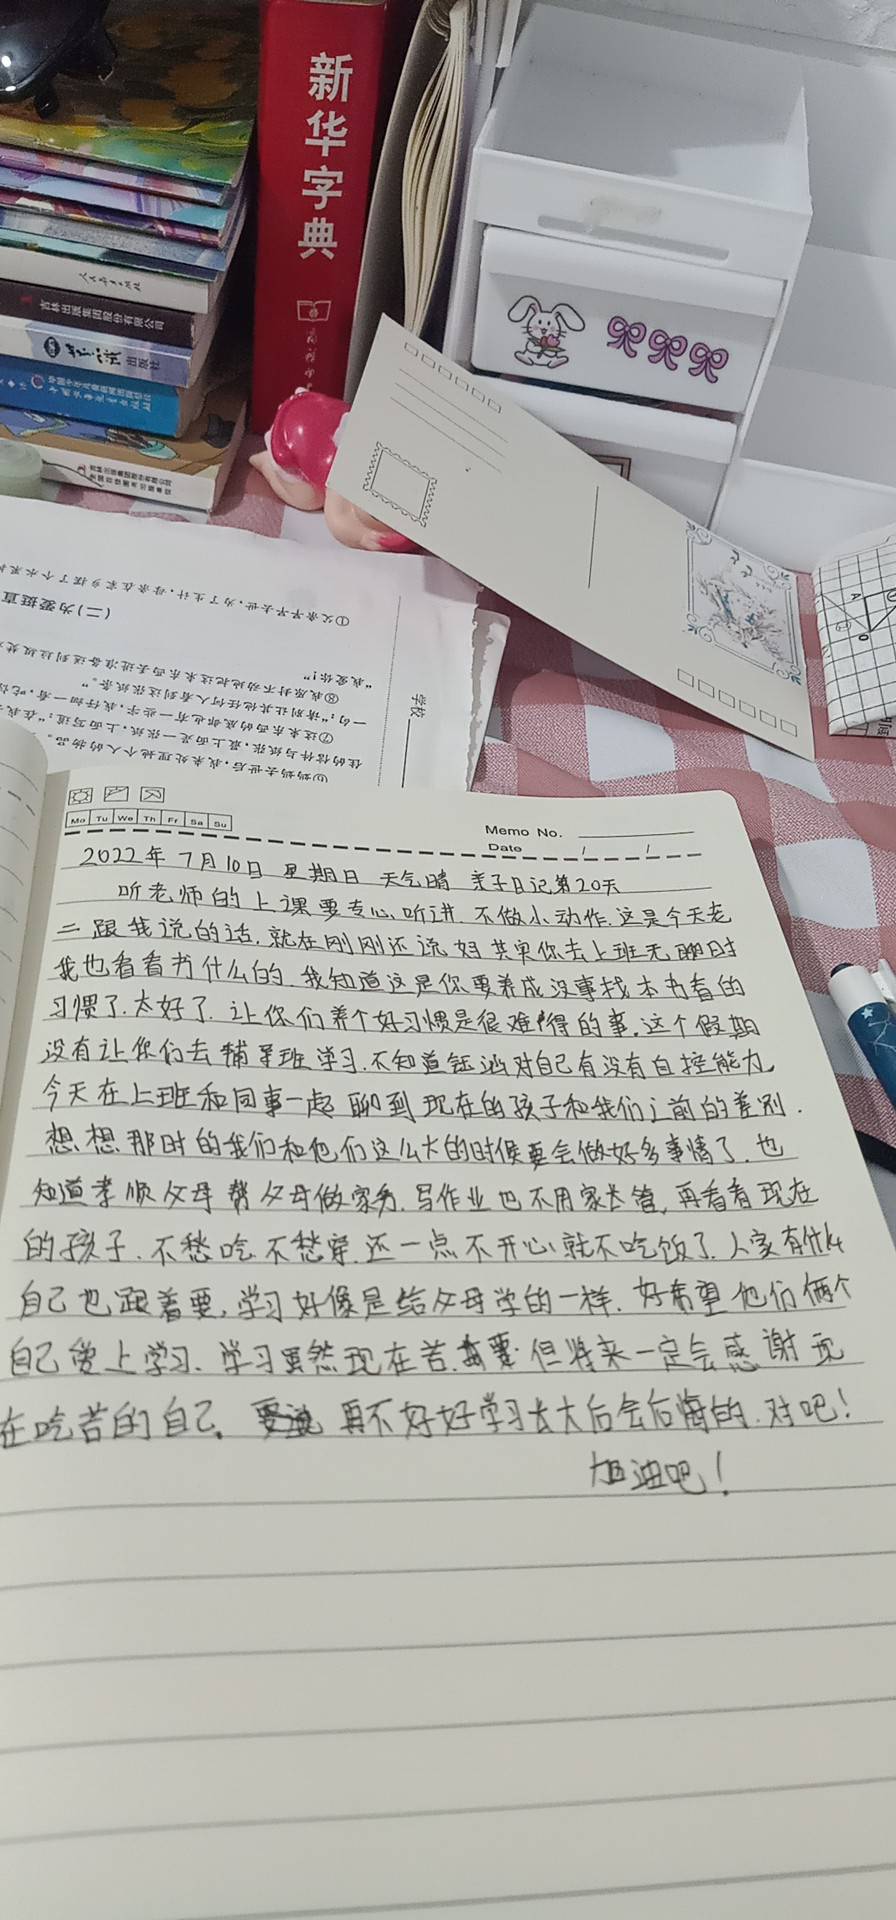 新华字典
人民常出版社
吉林出版集团股份有限公司
出版社
学校
(二)为爱挺直
①父亲早早去世,为了生计,母亲在家乡摆了个水果
"我爱你!"
⑦这本东西的底部也有一些字,我仔细一看,吃惊
⑥妈妈去世后,我来处理她个人的物品。
Mo Tu We Th Fr Sa Su
Memo No.
Date / /
2022年7月10日 星期日 天气晴 亲子日记第20天
听老师的上课要专心听讲.不做小动作.这是今天老
二跟我说的话.就在刚刚还说妈其实你去上班无聊时
我也看看书什么的.我知道这是你要养成没事找本书看的
习惯了.太好了.让你们养个好习惯是很难得的事.这个假期
没有让你们去辅导班学习.不知道钰涵对自己有没有自控能力
今天在上班和同事一起聊到现在的孩子和我们之前的差别.
想想那时的我们和他们这么大的时候要会做好多事情了.也
知道孝顺父母帮父母做家务.写作业也不用家长管,再看看现在
的孩子.不愁吃不愁穿.还一点不开心就不吃饭了.人家有什么
自己也跟着要,学习好像是给父母学的一样.好希望他们俩个
自己爱上学习.学习虽然现在苦.但将来一定会感谢现
在吃苦的自己. 再不好好学习长大后会后悔的.对吧!
加油吧!